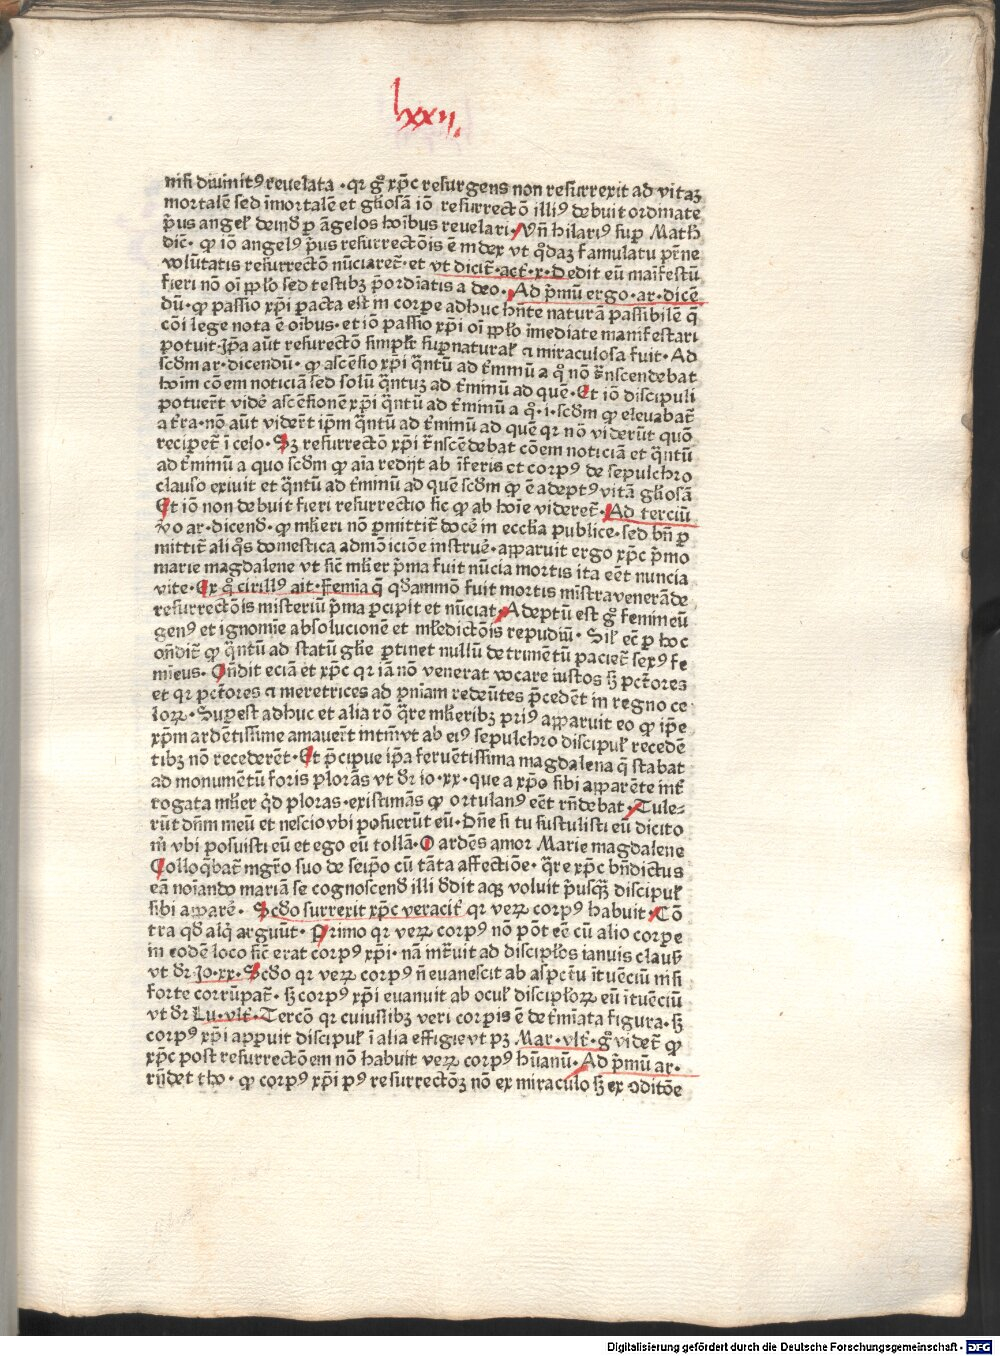 lxxij.
nisi diuinitꝰ reuelata · qr gͦ xp̄c resurgens non resurrexit ad vitaʒ
mortalē sed īmortalē et gl̄iosā iō resurrectō illiꝰ debuit ordinate
p̄us angel̛ deīnd̛ ꝑ āgelos hoībus reuelari · Vn̄ hilariꝰ suꝑ Math
dic̄t · ꝙ iō angelꝰ p̄us resurrectōis ē index vt qͦdaʒ famulatu pr̄ne
volūtatis resurrectō nūciaret̄ · et vt dicit̄ · act̄ · x · Dedit eū maīfestū
fieri nō oī pp̄lo sed testibʒ p̄ordīatis a deo · Ad p̄mū ergo · ar · dicē
dū · ꝙ passio xp̄i ꝑacta est in corpe adhuc hn̄te naturā passibilē q̄
cōi lege nota ē oībus · et iō passio xp̄i oī pp̄lo īmediate manifestari
potuit · Ip̄a aūt resurectō simpl̛r sup̱natural̛ ⁊ miraculosa fuit · Ad
scd̄m ar · dicendū · ꝙ ascēsio xp̄i q̄ntū ad t̄minū a qͦ nō t̄nscendebat
hoīm cōem noticiā sed solū q̄ntuʒ ad t̄minū ad quē · Et iō discipuli
potuer̄t vide̛ ascēsionē xp̄i q̄ntū ad t̄minū a qͦ · i · scd̄m ꝙ eleuabat̄
a t̄ra · nō aūt vider̄t ip̄m q̄ntū ad t̄minū ad quē qr nō viderūt quō
recipet̄ ī celo · Sʒ resurrectō xp̄i t̄nscēdebat cōem noticiā et q̄ntū
ad t̄minū a quo scd̄m ꝙ aīa redijt ab īferis et corpꝰ de sepulchro
clauso exiuit et q̄ntū ad t̄minū ad quē scd̄m ꝙ ē adeptꝰ vitā gl̄iosā
Et iō non debuit fieri resurrectio sic ꝙ ab hoīe videret̄ · Ad terciū
vͦo ar · dicend̛ · ꝙ ml̛ieri nō ꝑmittit̄ docē in eccl̄ia publice · sed bn̄ ꝑ
mittit̄ aliqͦs domestica admōicionē instrue̛ · apparuit ergo xp̄c p̄mo
marie magdalene vt sic̄ ml̛ier p̄ma fuit nūcia mortis ita eēt nuncia
vite · Ex qͦ cirillꝰ ait · Femīa q̄ qd̄ammō fuit mortis mīstra venerāde
resurrectōis misteriū p̄ma ꝑcipit et nūciat · Adeptū est gͦ femineū
genꝰ et ignomīe absolucionē et ml̛edictōis repudiū · Sil̛ ec̄ ꝑ hoc
on̄dit̄ ꝙ q̄ntū ad statū gl̄ie ꝑtinet nullū detrimētū paciet̄ sexꝰ fe
mīeus · On̄dit eciā et xp̄c qr iā nō venerat vocare iustos sʒ pct̄ores
et qr pct̄ores ⁊ meretrices ad pn̄iam redeūtes p̄cedēt in regno ce
loꝝ · Suꝑest adhuc et alia rō q̄re ml̛ieribʒ priꝰ apparuit eo ꝙ ip̄e
xp̄m ardētissime amauer̄t intm̄ vt ab eiꝰ sepulchro discipul̛ recedē
tibʒ nō recederēt · Et p̄cipue ip̄a feruētissima magdalena q̄ stabat
ad monumētū foris plorās vt dr̄ io · xx · que a xp̄o sibi apparēte int̄
rogata ml̛ier qͥd ploras · existimās ꝙ ortulanꝰ eēt rn̄debat · Tule-
rūt dn̄m meū et nescio vbi posuerūt eū · Dn̄e si tu sustulisti eū dicito
m̛ vbi posuisti eū et ego eū tollā · O ardēs amor Marie magdalene
Colloqͤbat̄ mgr̄o suo de seip̄o cū tāta affectiōe · q̄re xp̄c bn̄dictus
eā noīando mariā se cognoscend̛ illi d̛dit aqͣ voluit p̄usqʒ̄ discipul̛
sibi appare̛ · Scd̛o surrexit xp̄c veracit̄ qr veꝝ corpꝰ habuit · Cō
tra qd̛ alqͥ arguūt · Primo qr veꝝ corpꝰ nō pōt eē cū alio corpe
in eodē loco sic̄ erat corpꝰ xp̄i · nā int̄uit ad discipl̛os ianuis clausꝭ
vt dr̄ Io · xx · Scd̛o qr veꝝ corpꝰ n̄ euanescit ab aspctū ītuēciū nisi
forte corrūpat̄ · sʒ corpꝰ xp̄i euanuit ab ocul̛ discipl̛oꝝ eū ītuēciū
vt dr̄ Lu · vlt̄ · Tercō qr cuiuslibʒ veri corpis ē det̄mīata figura · sʒ
corpꝰ xp̄i appuit discipul̛ ī alia effigie vt pʒ Mar · vlt̄ · gͦ videt̄ ꝙ
xp̄c post resurrectōem nō habuit veꝝ corpꝰ hūanū · Ad p̄mū ar ·
rn̄det tho · ꝙ corpꝰ xp̄i pꝰ resurrectōʒ nō ex miraculo sʒ ex ꝯditōe
Digitalisierung gefördert durch die Deutsche Forschungsgemeinschaft - DFG